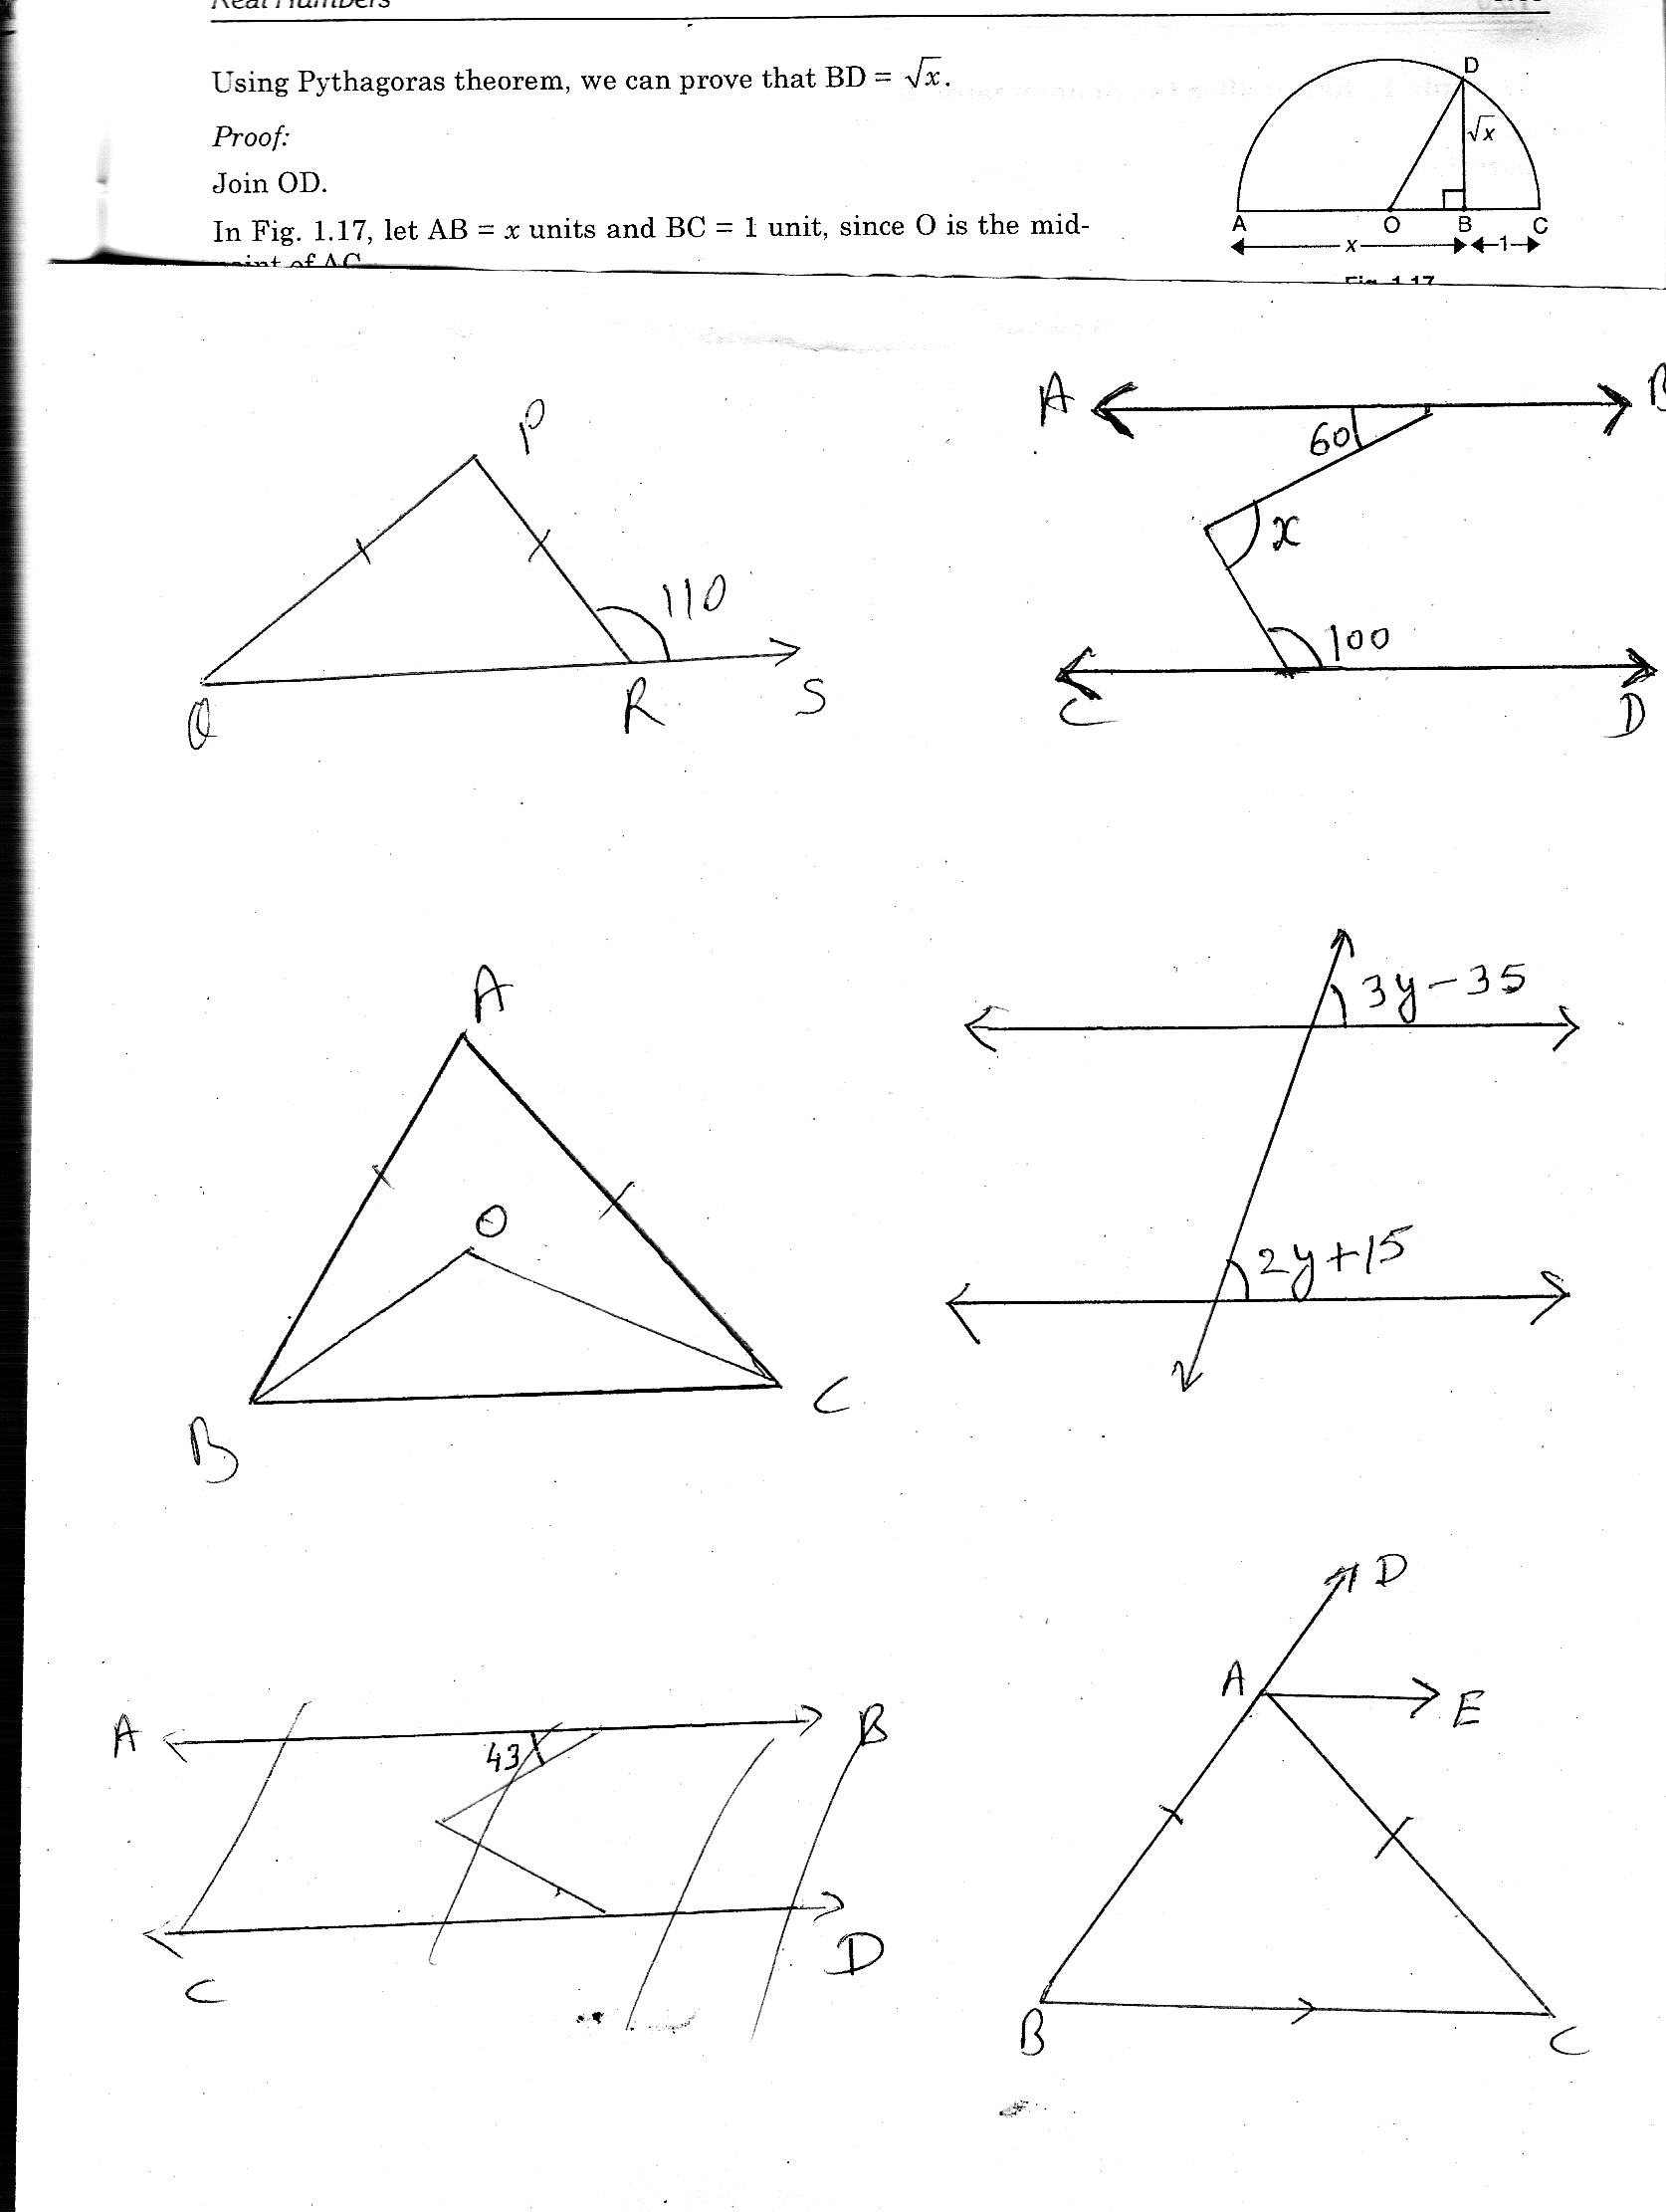 Using Pythagoras theorem, we can prove that BD = √x.
Proof:
Join OD.
In Fig. 1.17, let AB = x units and BC = 1 unit, since O is the mid-
D
√x
A O B C
x 1
P
110
Q R S
A
60
x
100
C D
A
O
B C
3y-35
2y+15
A B
43
C D
D
A E
B C